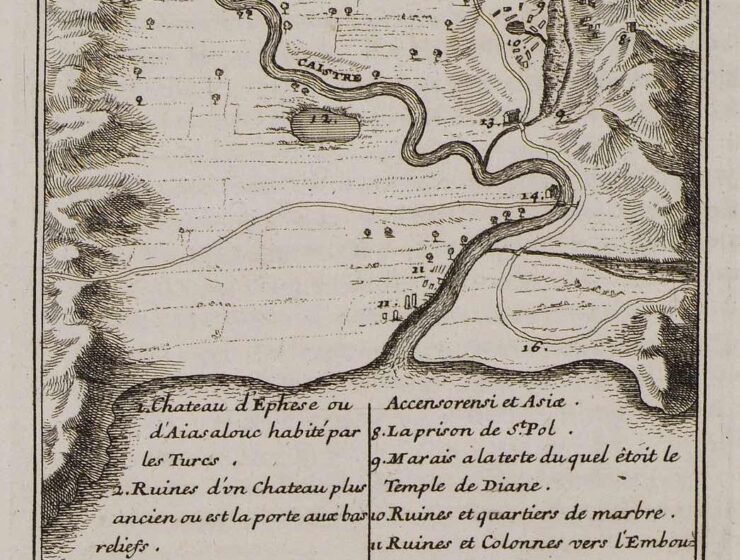 CAISTRE
12.
13.
9
8
14.
11
11.
16.
1. Chateau d'Ephese ou
d'Aiasalouc habité par
les Turcs.
2. Ruines d'vn Chateau plus
ancien ou est la porte aux bas
reliefs.
Accensorensi et Asiæ.
8. La prison de St. Pol.
9. Marais a la teste du quel êtoit le
Temple de Diane.
10. Ruines et quartiers de marbre.
11. Ruines et Colonnes vers l'Embou=